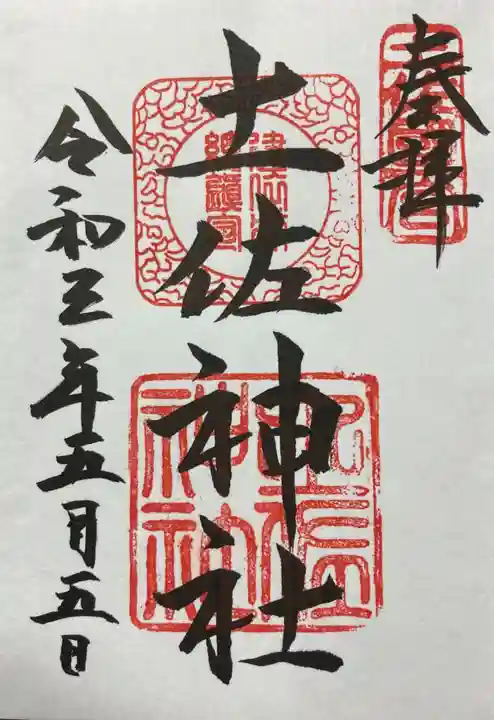 奉拝
土佐神社
令和三年五月五日
土佐神社